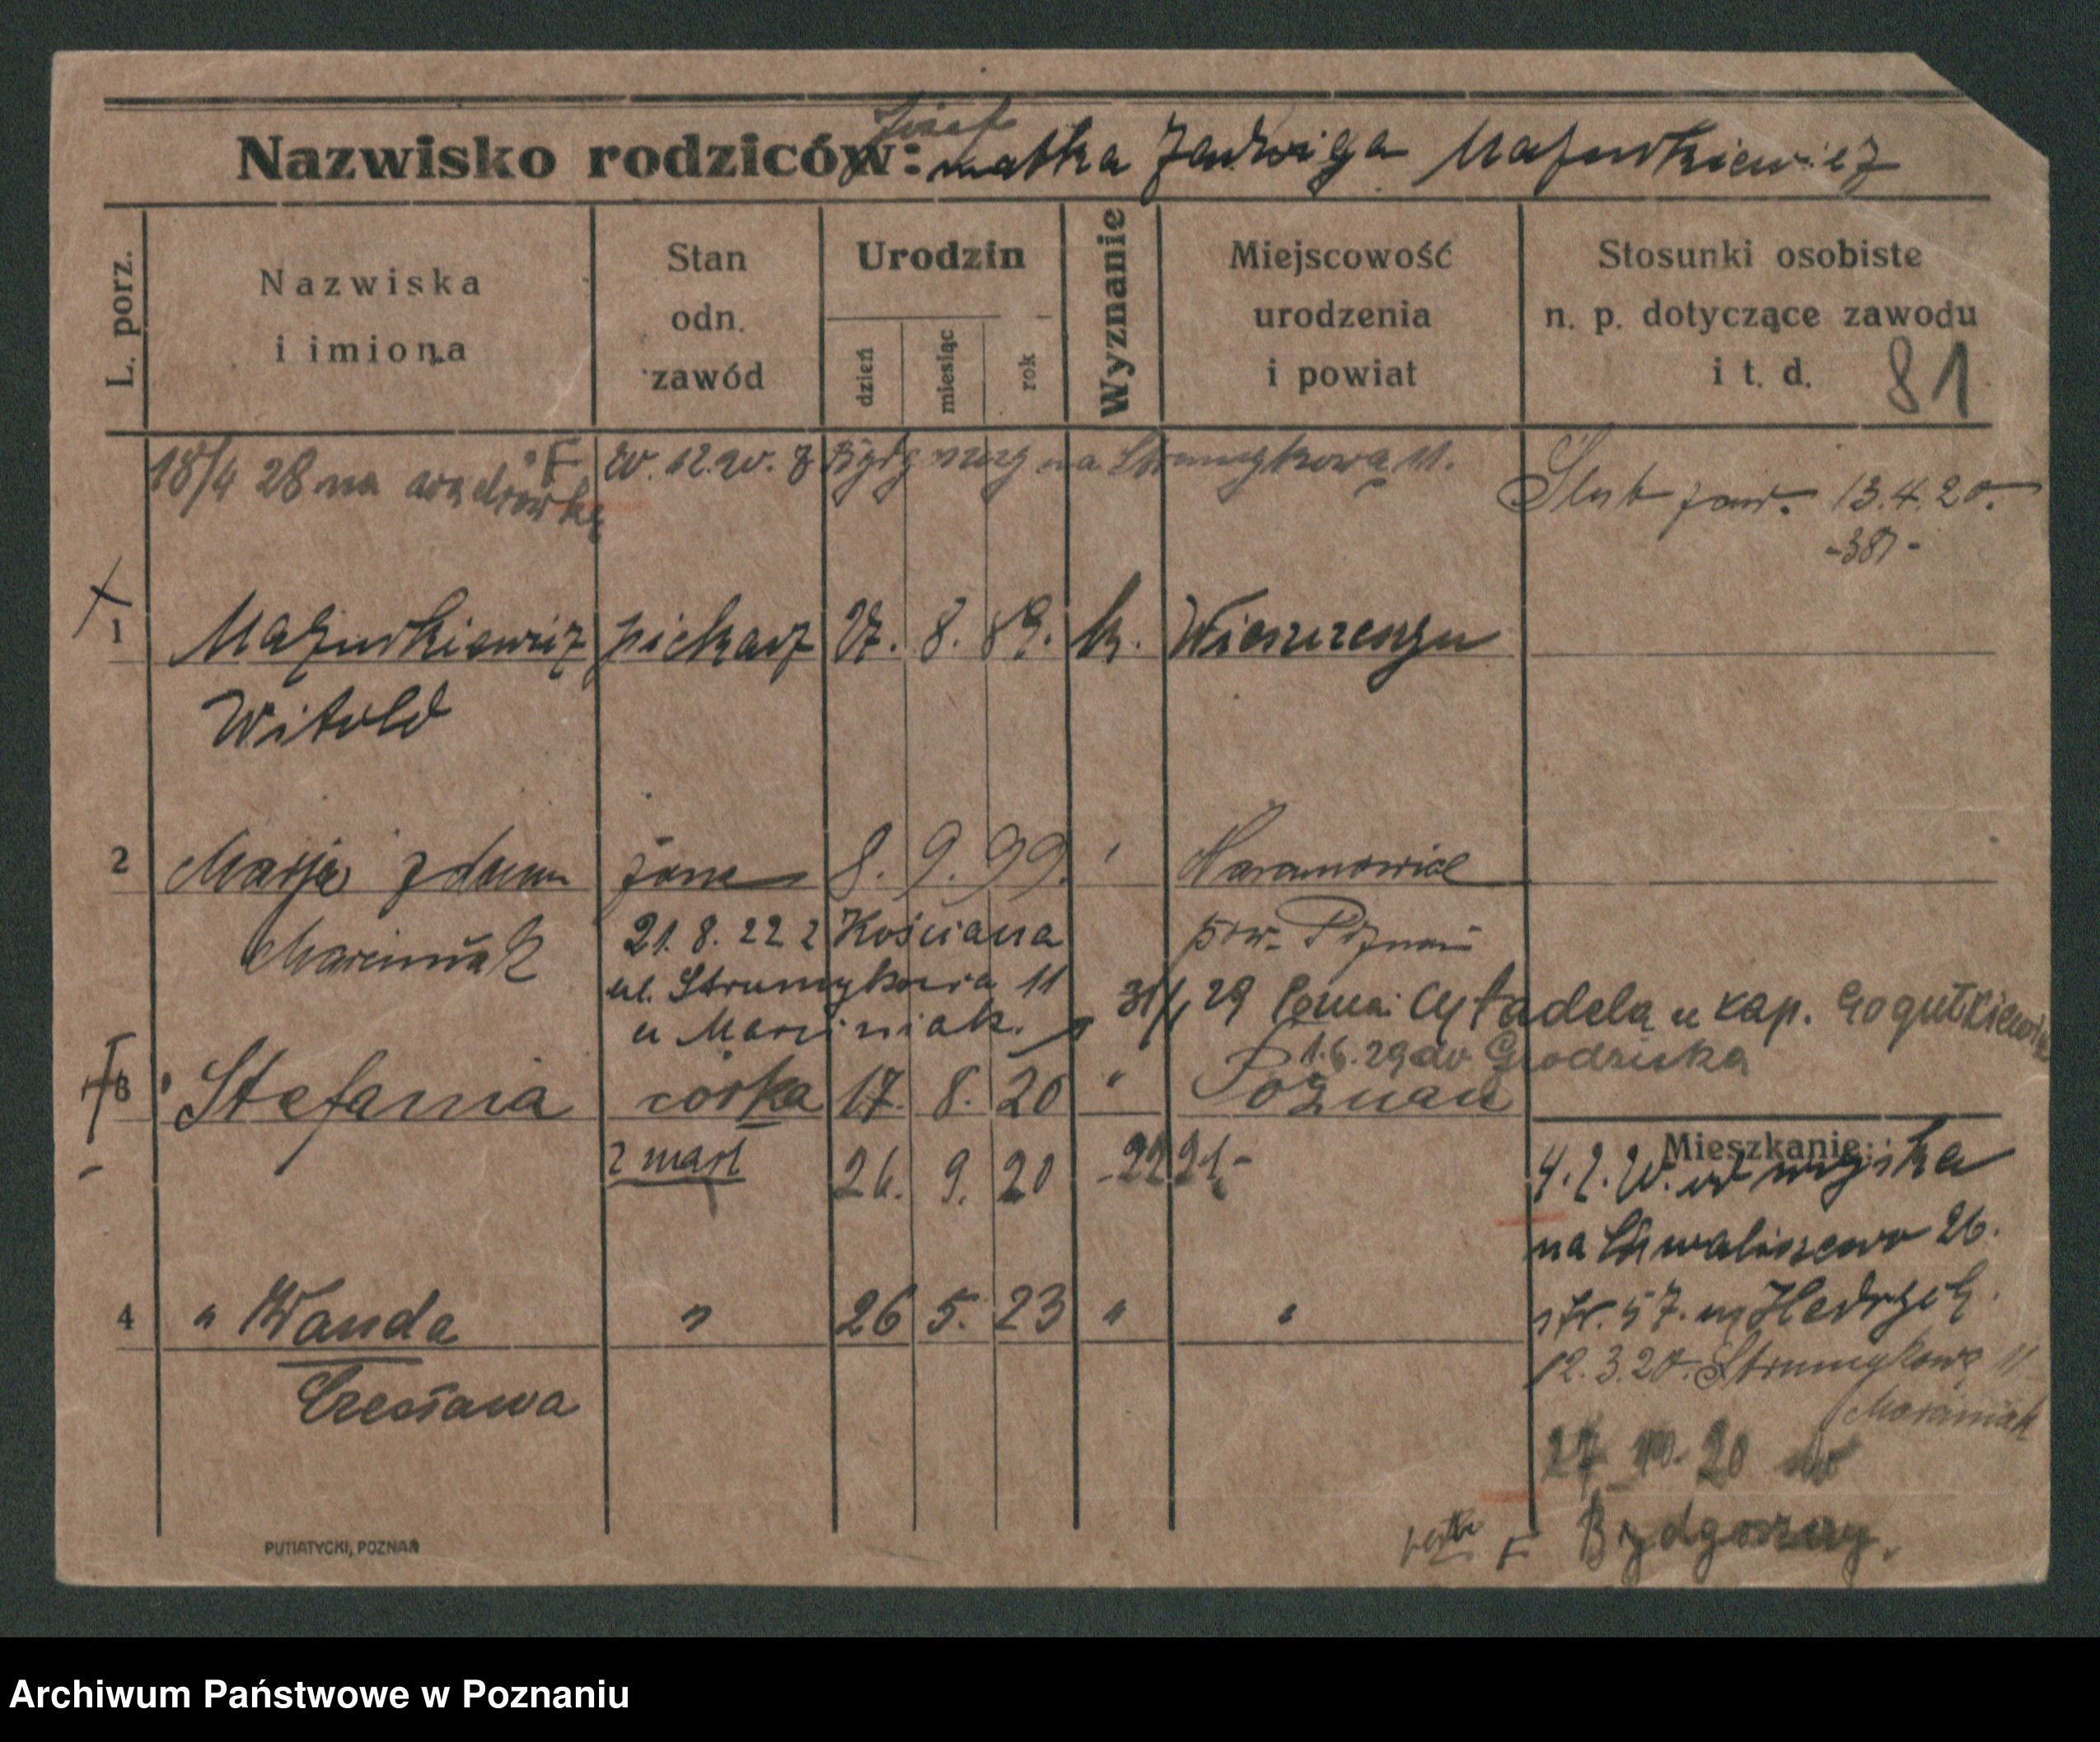 Józef
Nazwisko rodziców: matka Jadwiga Mazurkiewicz
L. porz.
Nazwiska
i imiona
Stan
odn.
zawód
Urodzin
dzień
miesiąc
rok
Wyznanie
Miejscowość
urodzenia
i powiat
Stosunki osobiste
n. p. dotyczące zawodu
i t. d.
81
18/4 28 na wędrówkę
F 20.12.20. z Bydgoszczy na Strumykową 11.
Ślub zaw. 13.4.20.
-381-
1 Mazurkiewicz piekarz 27. 8. 89. k.
Witold
2 Marja z dom żona 8. 9. 99. Naramowice
Marciniak 21. 8. 22 z Kościana pow. Poznań
ul. Strumykowa 11
u Marciniak.
31/1 29 Cytadela u kap.
1.6.29 do Grodziska
3 " Stefania córka 17. 8. 20 " Poznań
zmarł 26. 9. 20 -2221-
Mieszkanie:
4.2.20. od wojska
na Chwaliszewo 26.
str. 57. u
12.3.20. Strumykowa 11
Marciniak
4 " Wanda " 26 5. 23 " "
Czesława
27 20 do
F Bydgoszczy.
PUTIATYCKI, POZNAŃ
Archiwum Państwowe w Poznaniu